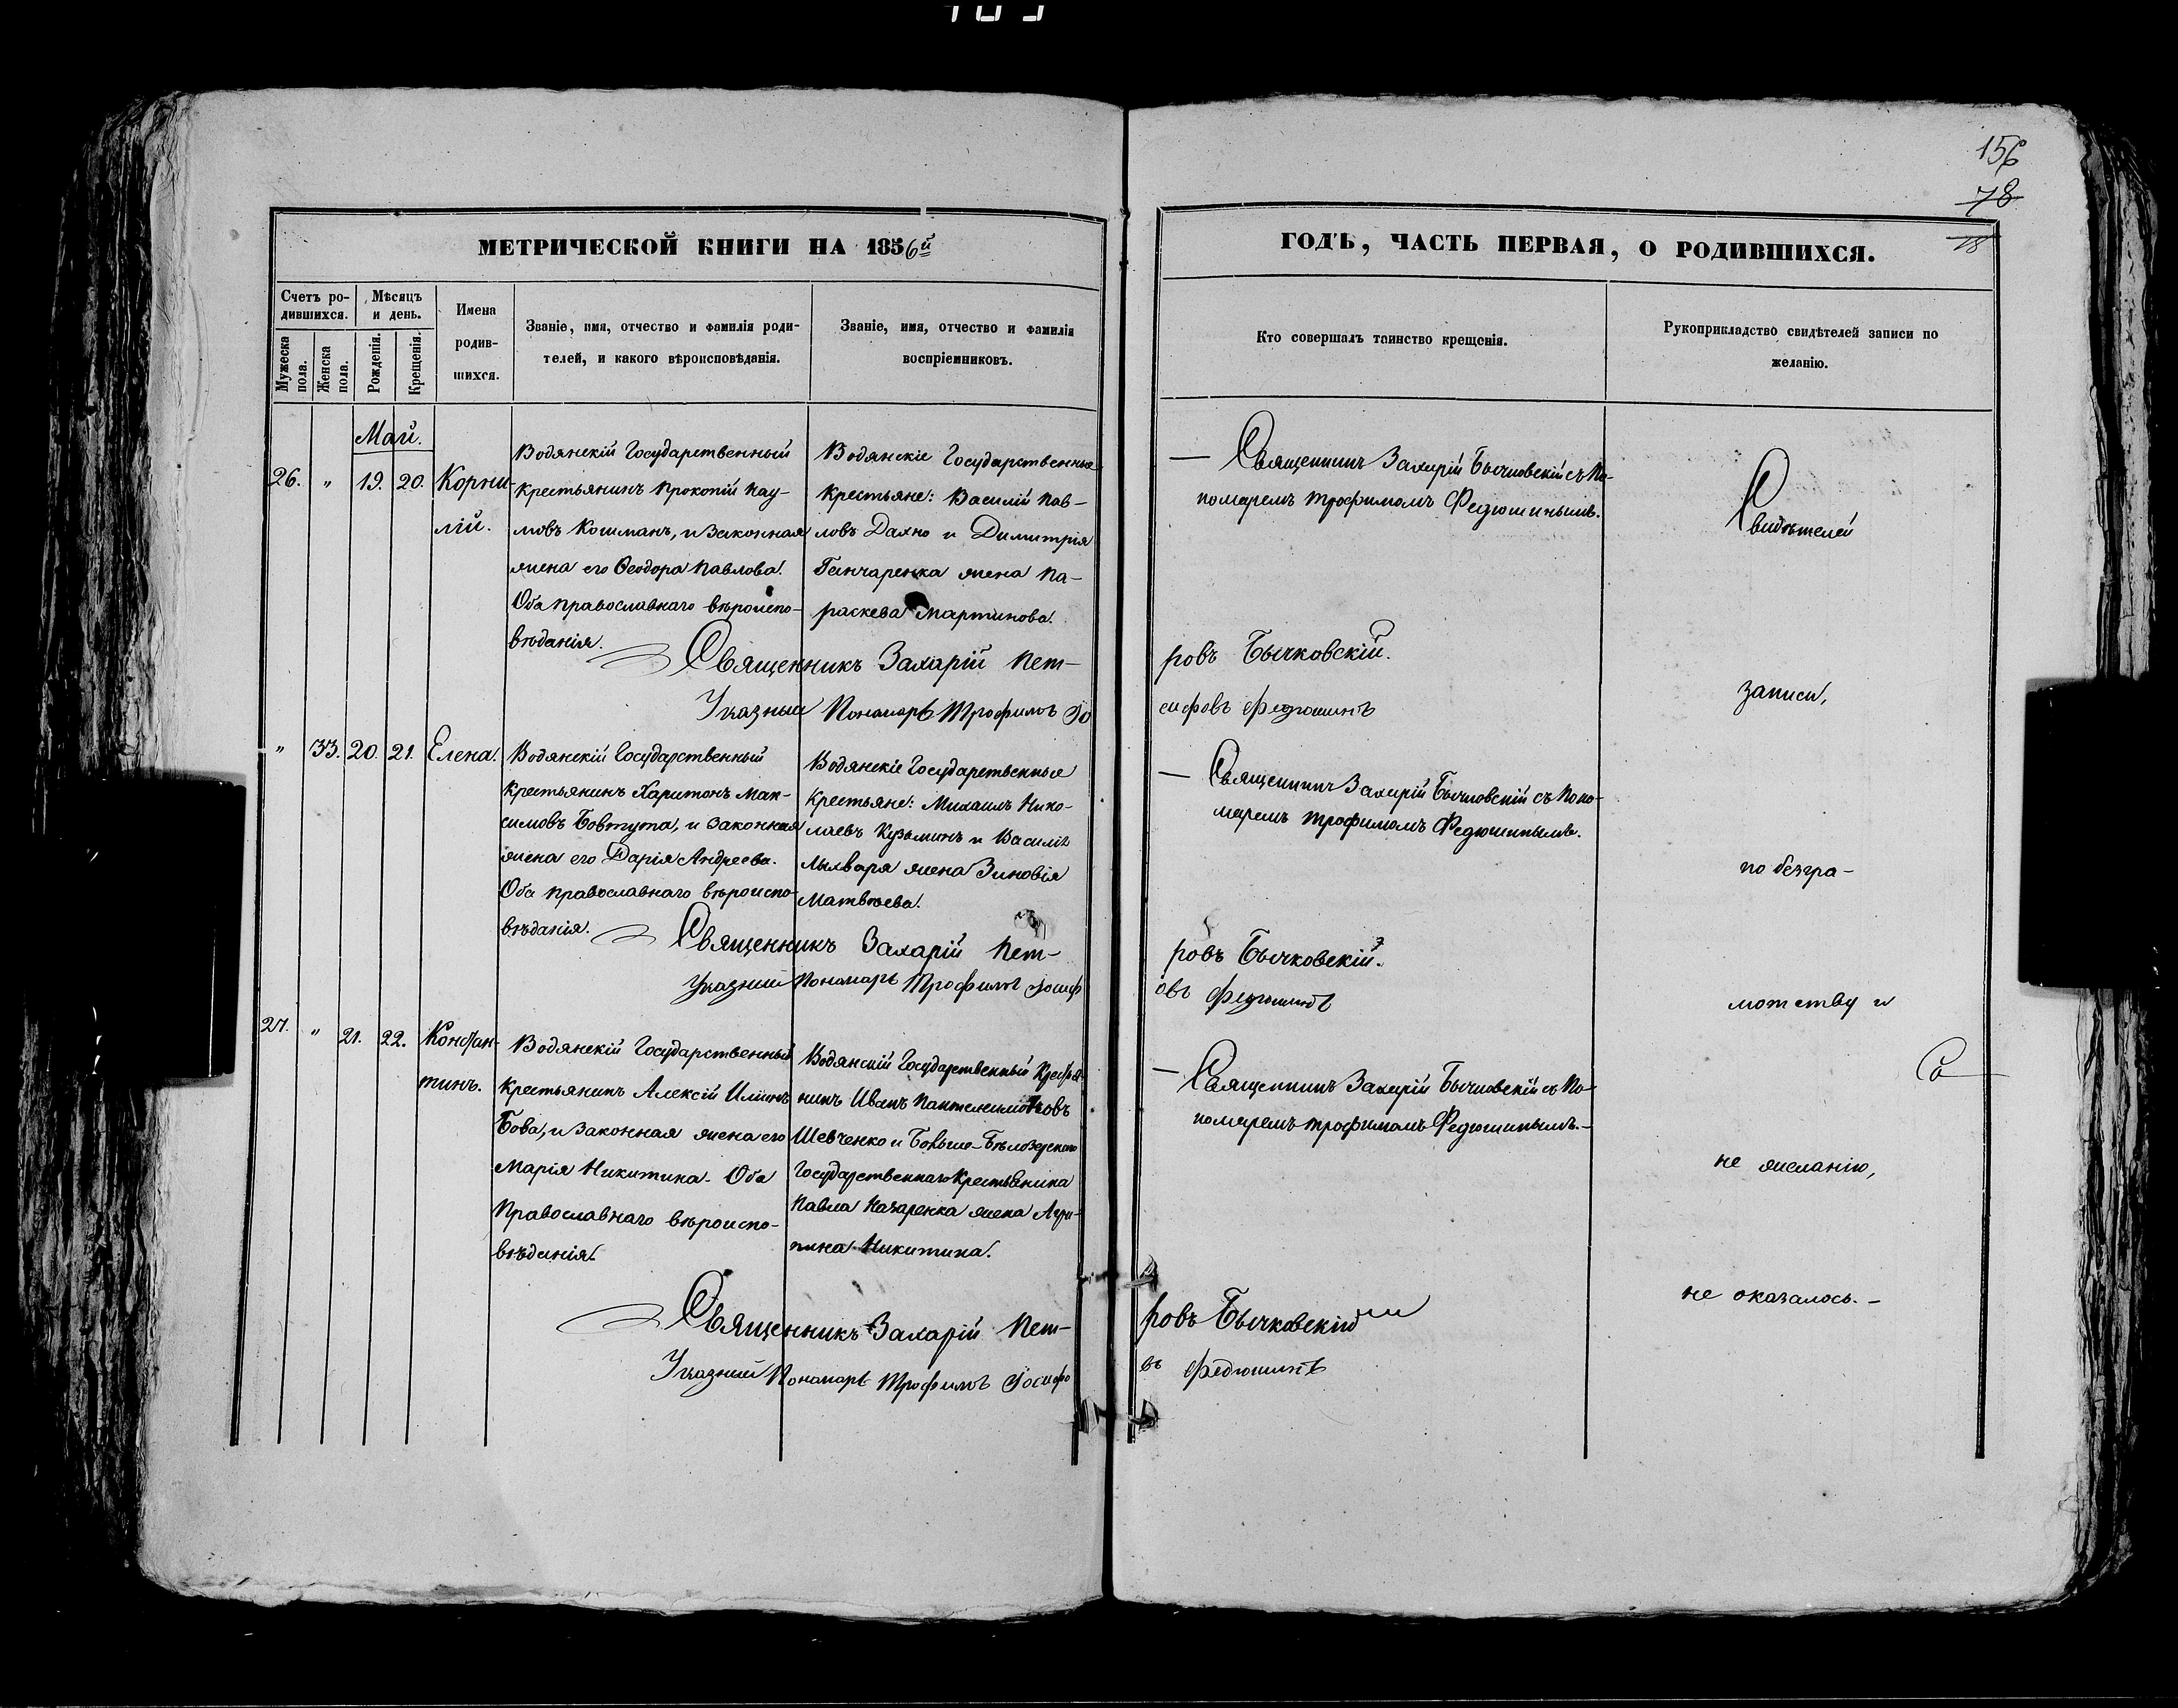 156
78
18
МЕТРИЧЕСКОЙ КНИГИ НА 1856й
ГОДЪ, ЧАСТЬ ПЕРВАЯ, О РОДИВШИХСЯ.
Счетъ ро-
дившихся.
Мужеска
пола.
Женска
пола.
Мѣсяцъ
и день.
Рожденія.
Крещенія.
Имена
родив-
шихся.
Званіе, имя, отчество и фамилія роди-
телей, и какого вѣроисповѣданія.
Званіе, имя, отчество и фамилія
воспріемниковъ.
Кто совершалъ таинство крещенія.
Рукоприкладство свидѣтелей записи по
желанію.
Май.
26. „ 19. 20. Корни-
лій.
Водянскій Государственный
крестьянинъ Прокопій Нау-
мовъ Кошманъ, и законная
жена его Ѳеодора Павлова.
Оба православнаго вѣроиспо-
вѣданія.
Водянскіе Государственные
крестьяне: Василій Пав-
ловъ Дахно и Димитрія
Ганчаренка жена Па-
раскева Мартинова.
— Священникъ Захарій Бычковскій съ По-
номаремъ Трофимомъ Федюшинымъ.
Священникъ Захарій Пет-
ровъ Бычковскій.
Указный Пономарь Трофимъ Іо
сифовъ Федюшинъ
„ 33. 20. 21. Елена.
Водянскій Государственный
крестьянинъ Харитонъ Мак-
симовъ Бовтута, и законная
жена его Дарія Андреева.
Оба православнаго вѣроиспо-
вѣданія.
Водянскіе Государственные
крестьяне: Михаилъ Нико-
лаевъ Кузьминъ и Василія
жена Зиновія
Матвѣева.
— Священникъ Захарій Бычковскій съ Поно-
маремъ Трофимомъ Федюшинымъ.
Священникъ Захарій Пет-
ровъ Бычковскій.
Указный Пономарь Трофимъ Іосиф
овъ Федюшинъ
27. „ 21. 22. Констан-
тинъ.
Водянскій Государственный
крестьянинъ Алексій
Бова, и законная жена его
Марія Никитина. Оба
Православнаго вѣроиспо-
вѣданія.
Водянскій Государственный Крестья-
нинъ Иванъ Пантелеимоновъ
Шевченко и Больше-Бѣлозерскаго
Государственнаго Крестьянина
Павла Назаренка жена Агри-
пина Никитина.
— Священникъ Захарій Бычковскій съ По-
номаремъ Трофимомъ Федюшинымъ.-
Священникъ Захарій Пет-
ровъ Бычковскій
Указный Пономарь Трофимъ Іосифо
въ Федюшинъ
Свидѣтелей
записи,
по безгра-
мотству и
не желанію,
не оказалось.-
Со